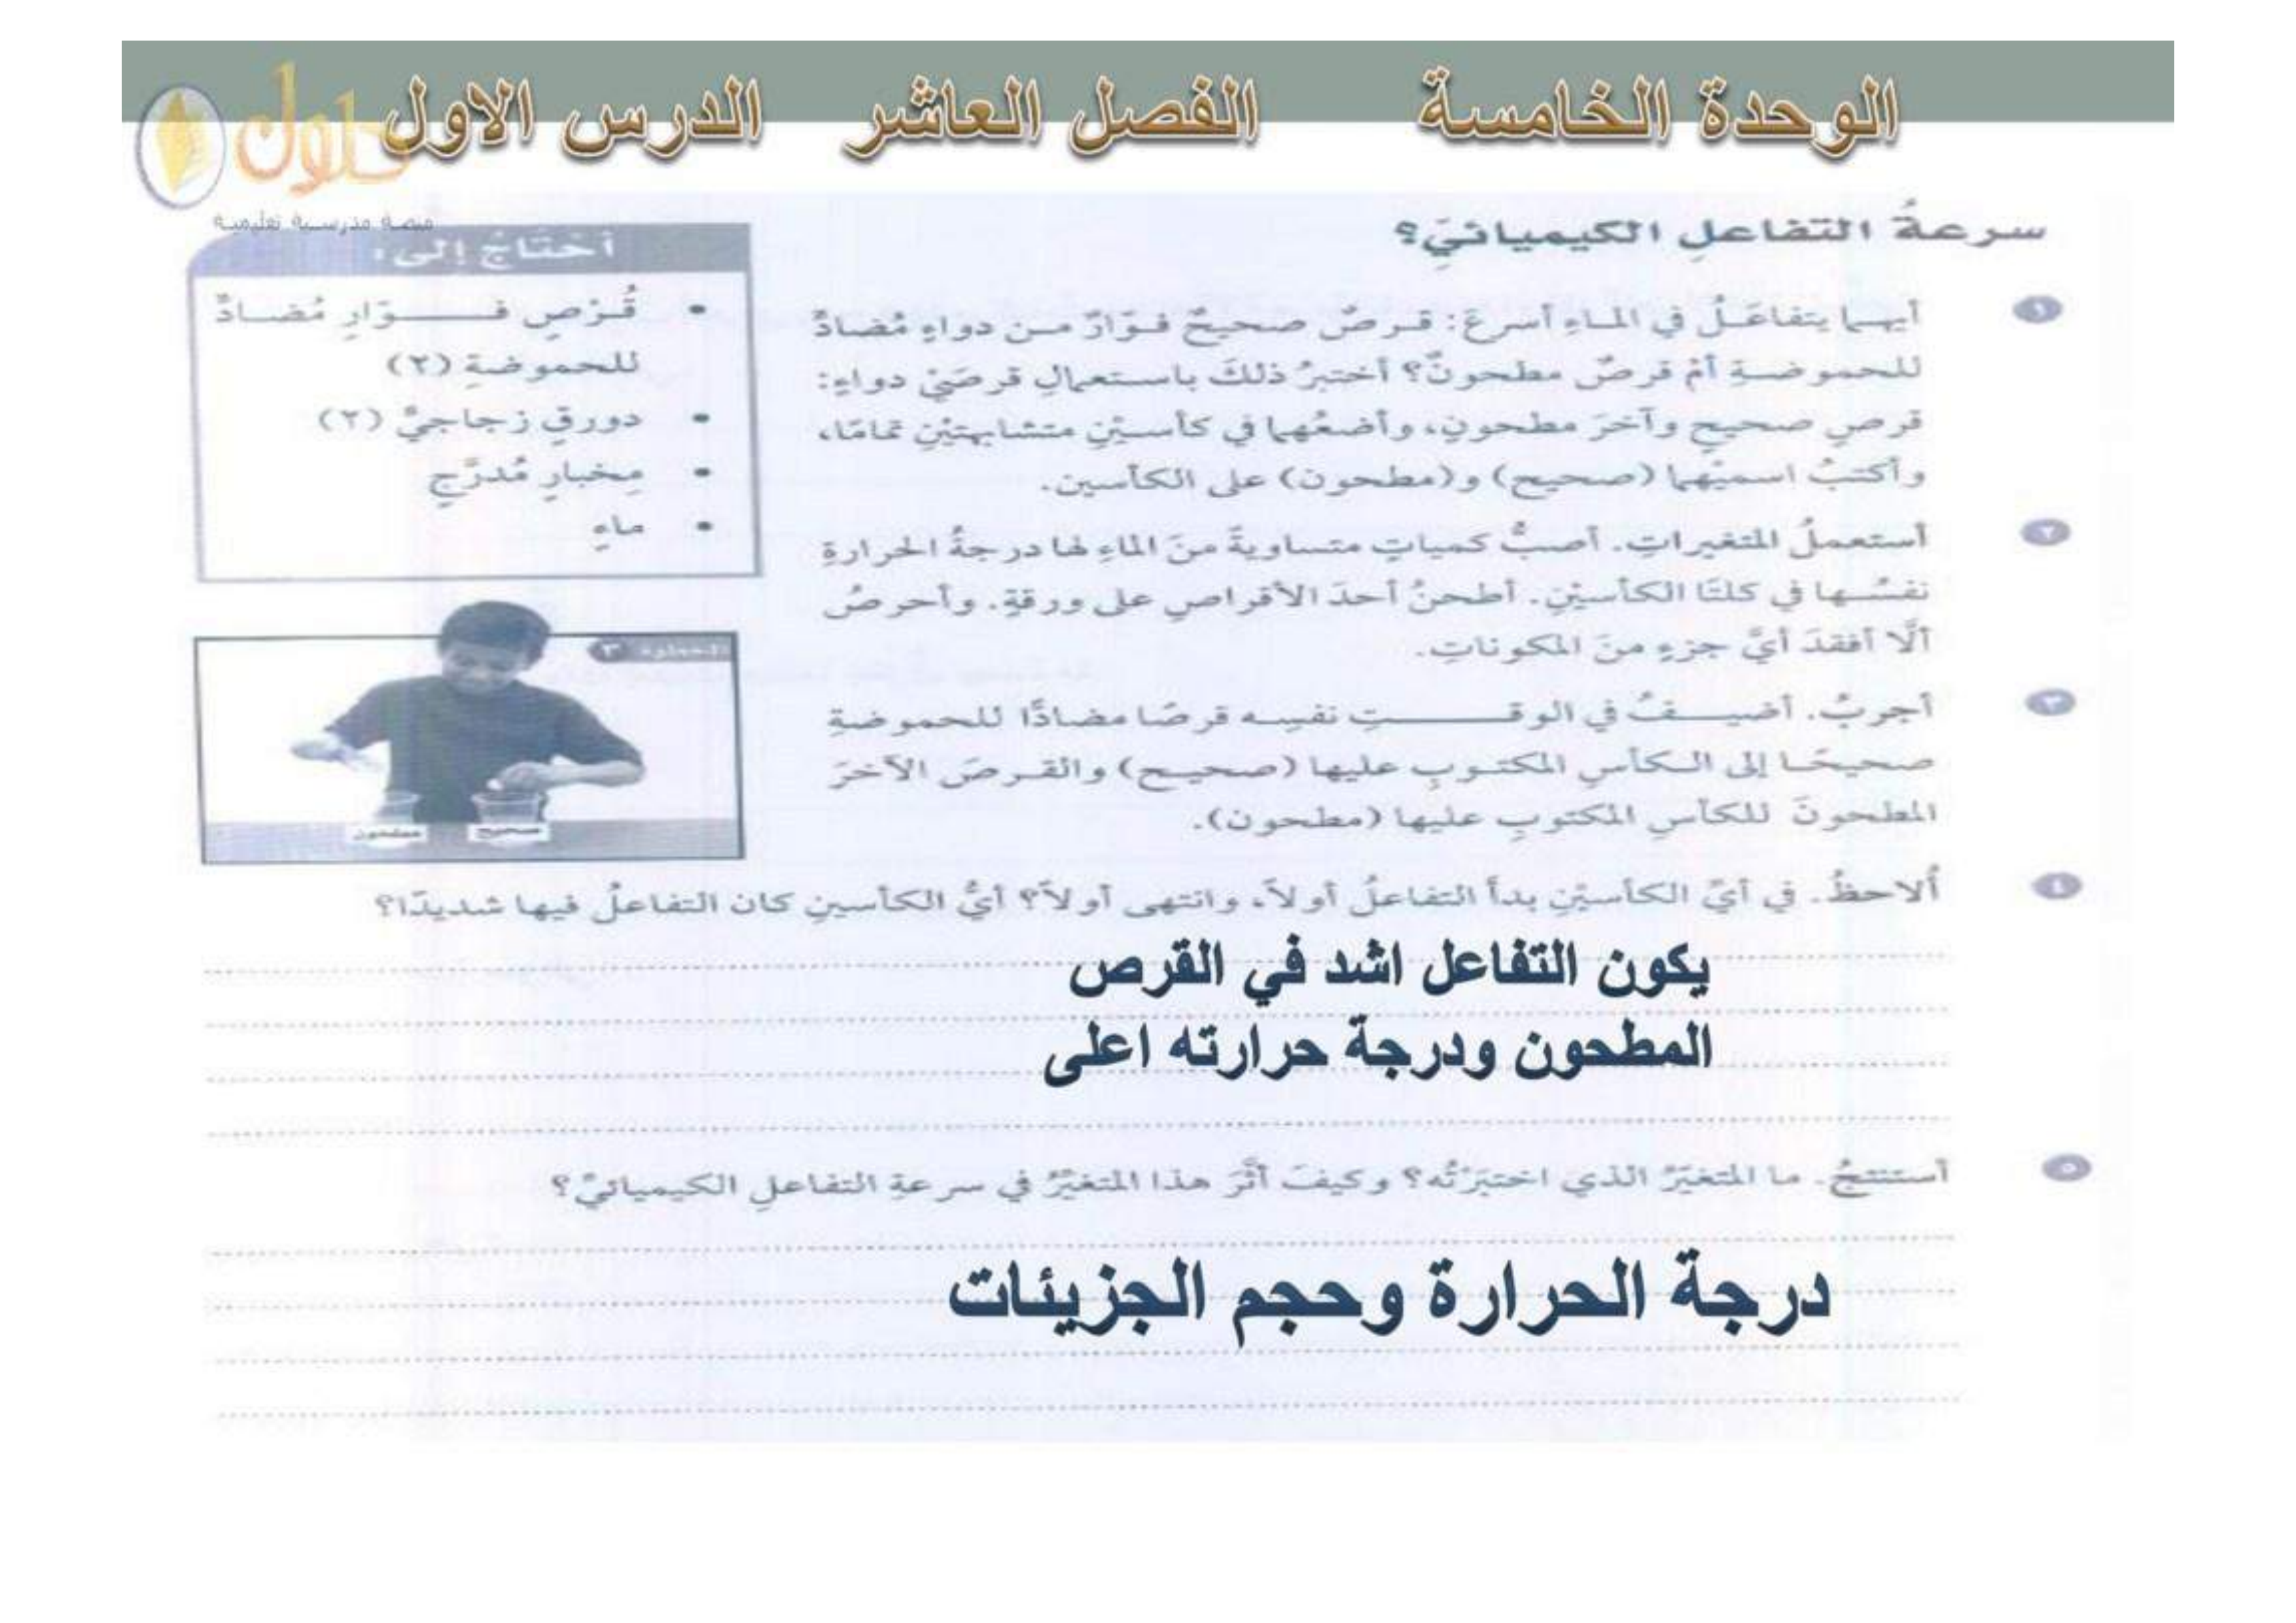 الوحدة الخامسة الفصل العاشر الدرس الاول
حلول
منصة مدرسية تعليمية
سرعةُ التفاعلِ الكيميائيِّ؟
أحتاجُ إلى:
• قُرْصِ فوّارِ مُضادٍّ
للحموضةِ (٢)
• دورقٍ زجاجيٍّ (٢)
• مِخبارٍ مُدرَّجٍ
• ماءٍ
١ أيهما يتفاعَلُ في الماءِ أسرعَ: قرصٌ صحيحٌ فوّارٌ من دواءٍ مُضادٍّ
للحموضةِ أمْ قرصٌ مطحونٌ؟ أختبرُ ذلكَ باستعمالِ قرصَيْ دواءٍ:
قرصٍ صحيحٍ وآخرَ مطحونٍ، وأضعُهما في كأسيْنِ متشابهتيْنِ تمامًا،
وأكتبُ اسميْهما (صحيح) و(مطحون) على الكأسين.
٢ أستعملُ المتغيراتِ. أصبُّ كمياتٍ متساويةً منَ الماءِ لها درجةُ الحرارةِ
نفسُها في كلتَا الكأسيْنِ. أطحنُ أحدَ الأقراصِ على ورقةٍ. وأحرصُ
ألّا أفقدَ أيَّ جزءٍ منَ المكوناتِ.
٣ أجربُ. أضيفُ في الوقتِ نفسِه قرصًا مضادًّا للحموضةِ
صحيحًا إلى الكأسِ المكتوبِ عليها (صحيح) والقرصَ الآخرَ
المطحونَ للكأسِ المكتوبِ عليها (مطحون).
الخطوة ٣
مطحون صحيح
٤ أُلاحظُ. في أيِّ الكأسيْنِ بدأَ التفاعلُ أولاً، وانتهى أولاً؟ أيُّ الكأسينِ كان التفاعلُ فيها شديدًا؟
يكون التفاعل اشد في القرص
المطحون ودرجة حرارته اعلى
٥ أستنتجُ. ما المتغيّرُ الذي اختبَرْتُه؟ وكيفَ أثَّرَ هذا المتغيّرُ في سرعةِ التفاعلِ الكيميائيِّ؟
درجة الحرارة وحجم الجزيئات